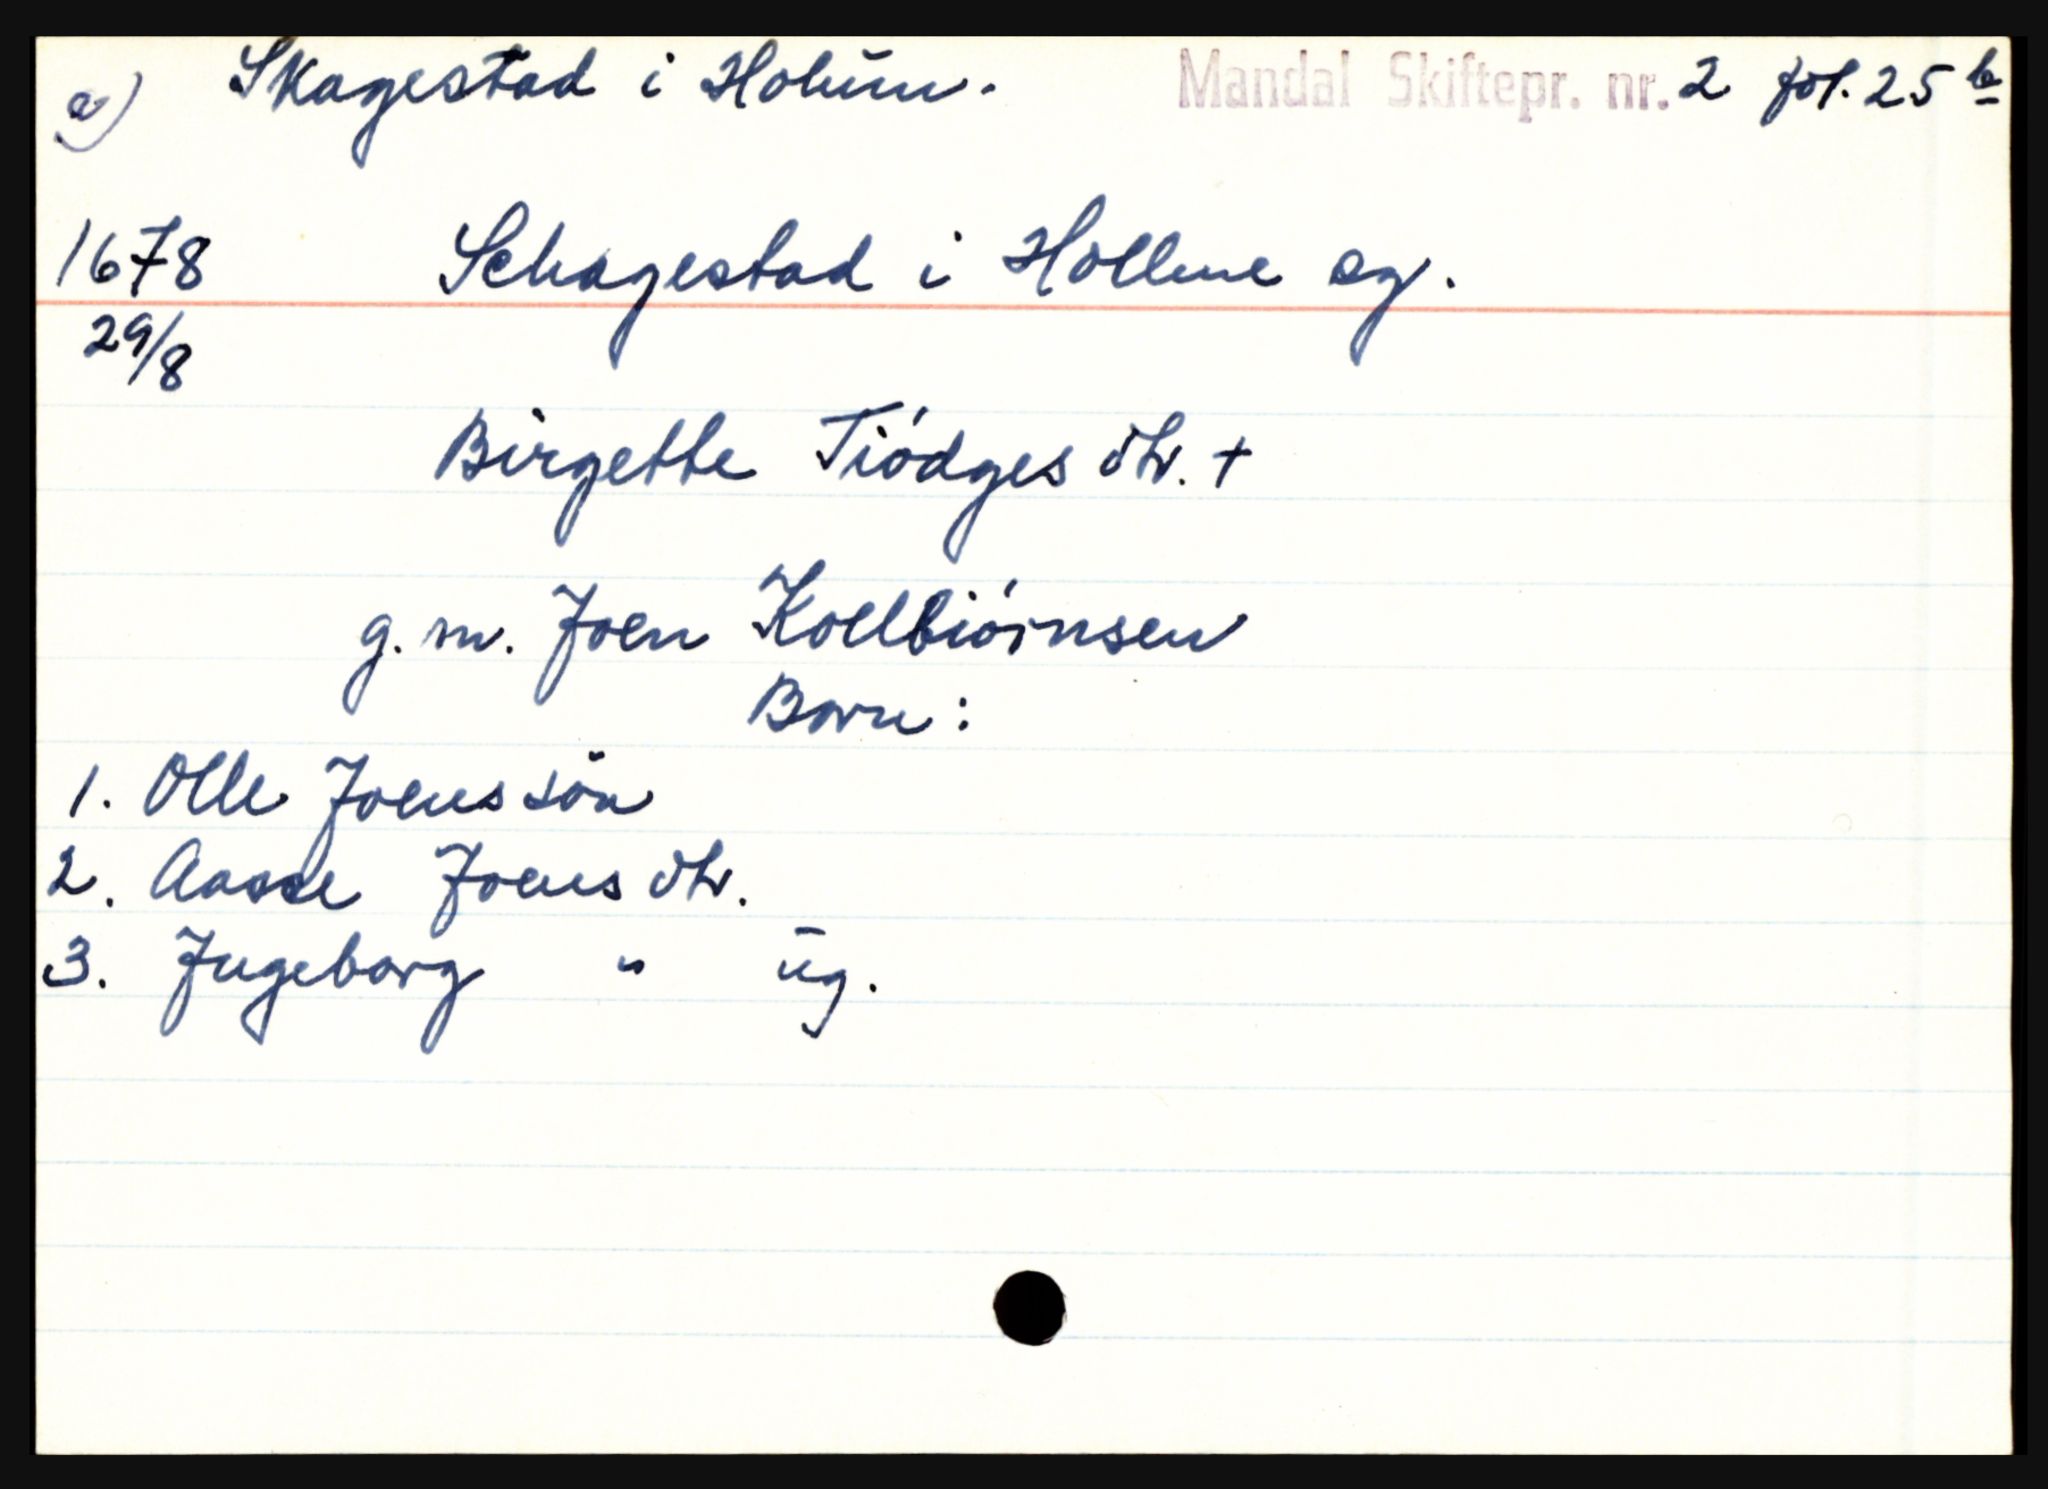 a) Skagestad i Holum. Mandal Skiftepr. nr. 2 fol. 25 b
1678 Schagestad i Hollme sg.
29/8
Birgette Tiódges dtr. +
g. m. Joen Kollbiórnsen
Born:
1. Olle Joenssön
2. Aasse Joens dtr.
3. Ingeborg " ug.